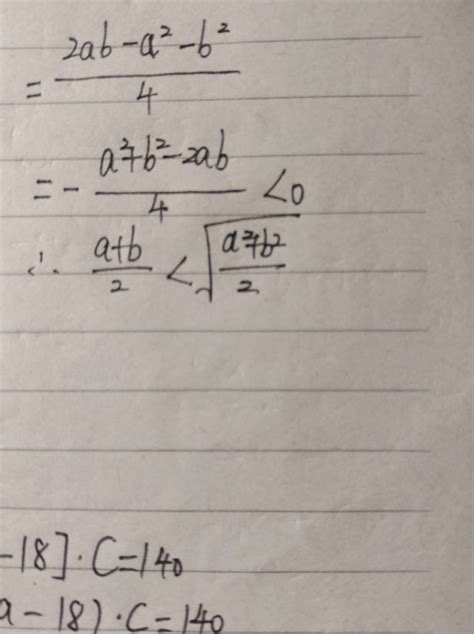 = (2ab-a²-b²)/4
= - (a²+b²-2ab)/4 <0
∴ (a+b)/2 < √((a²+b²)/2)
-18]·C=140
a-18)·C=140